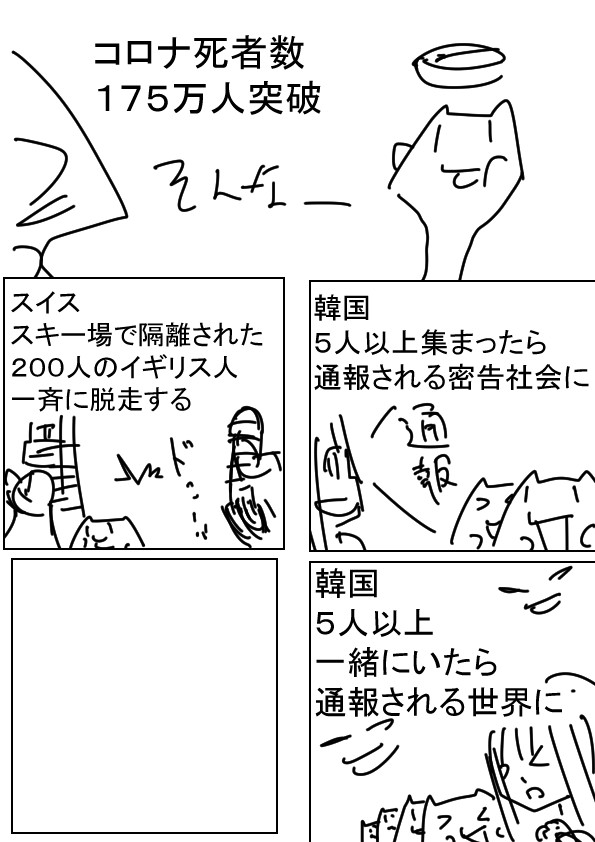 コロナ死者数
１７５万人突破
そんなー
韓国
５人以上集まったら
通報される密告社会に
通報
スイス
スキー場で隔離された
２００人のイギリス人
一斉に脱走する
韓国
５人以上
一緒にいたら
通報される世界に